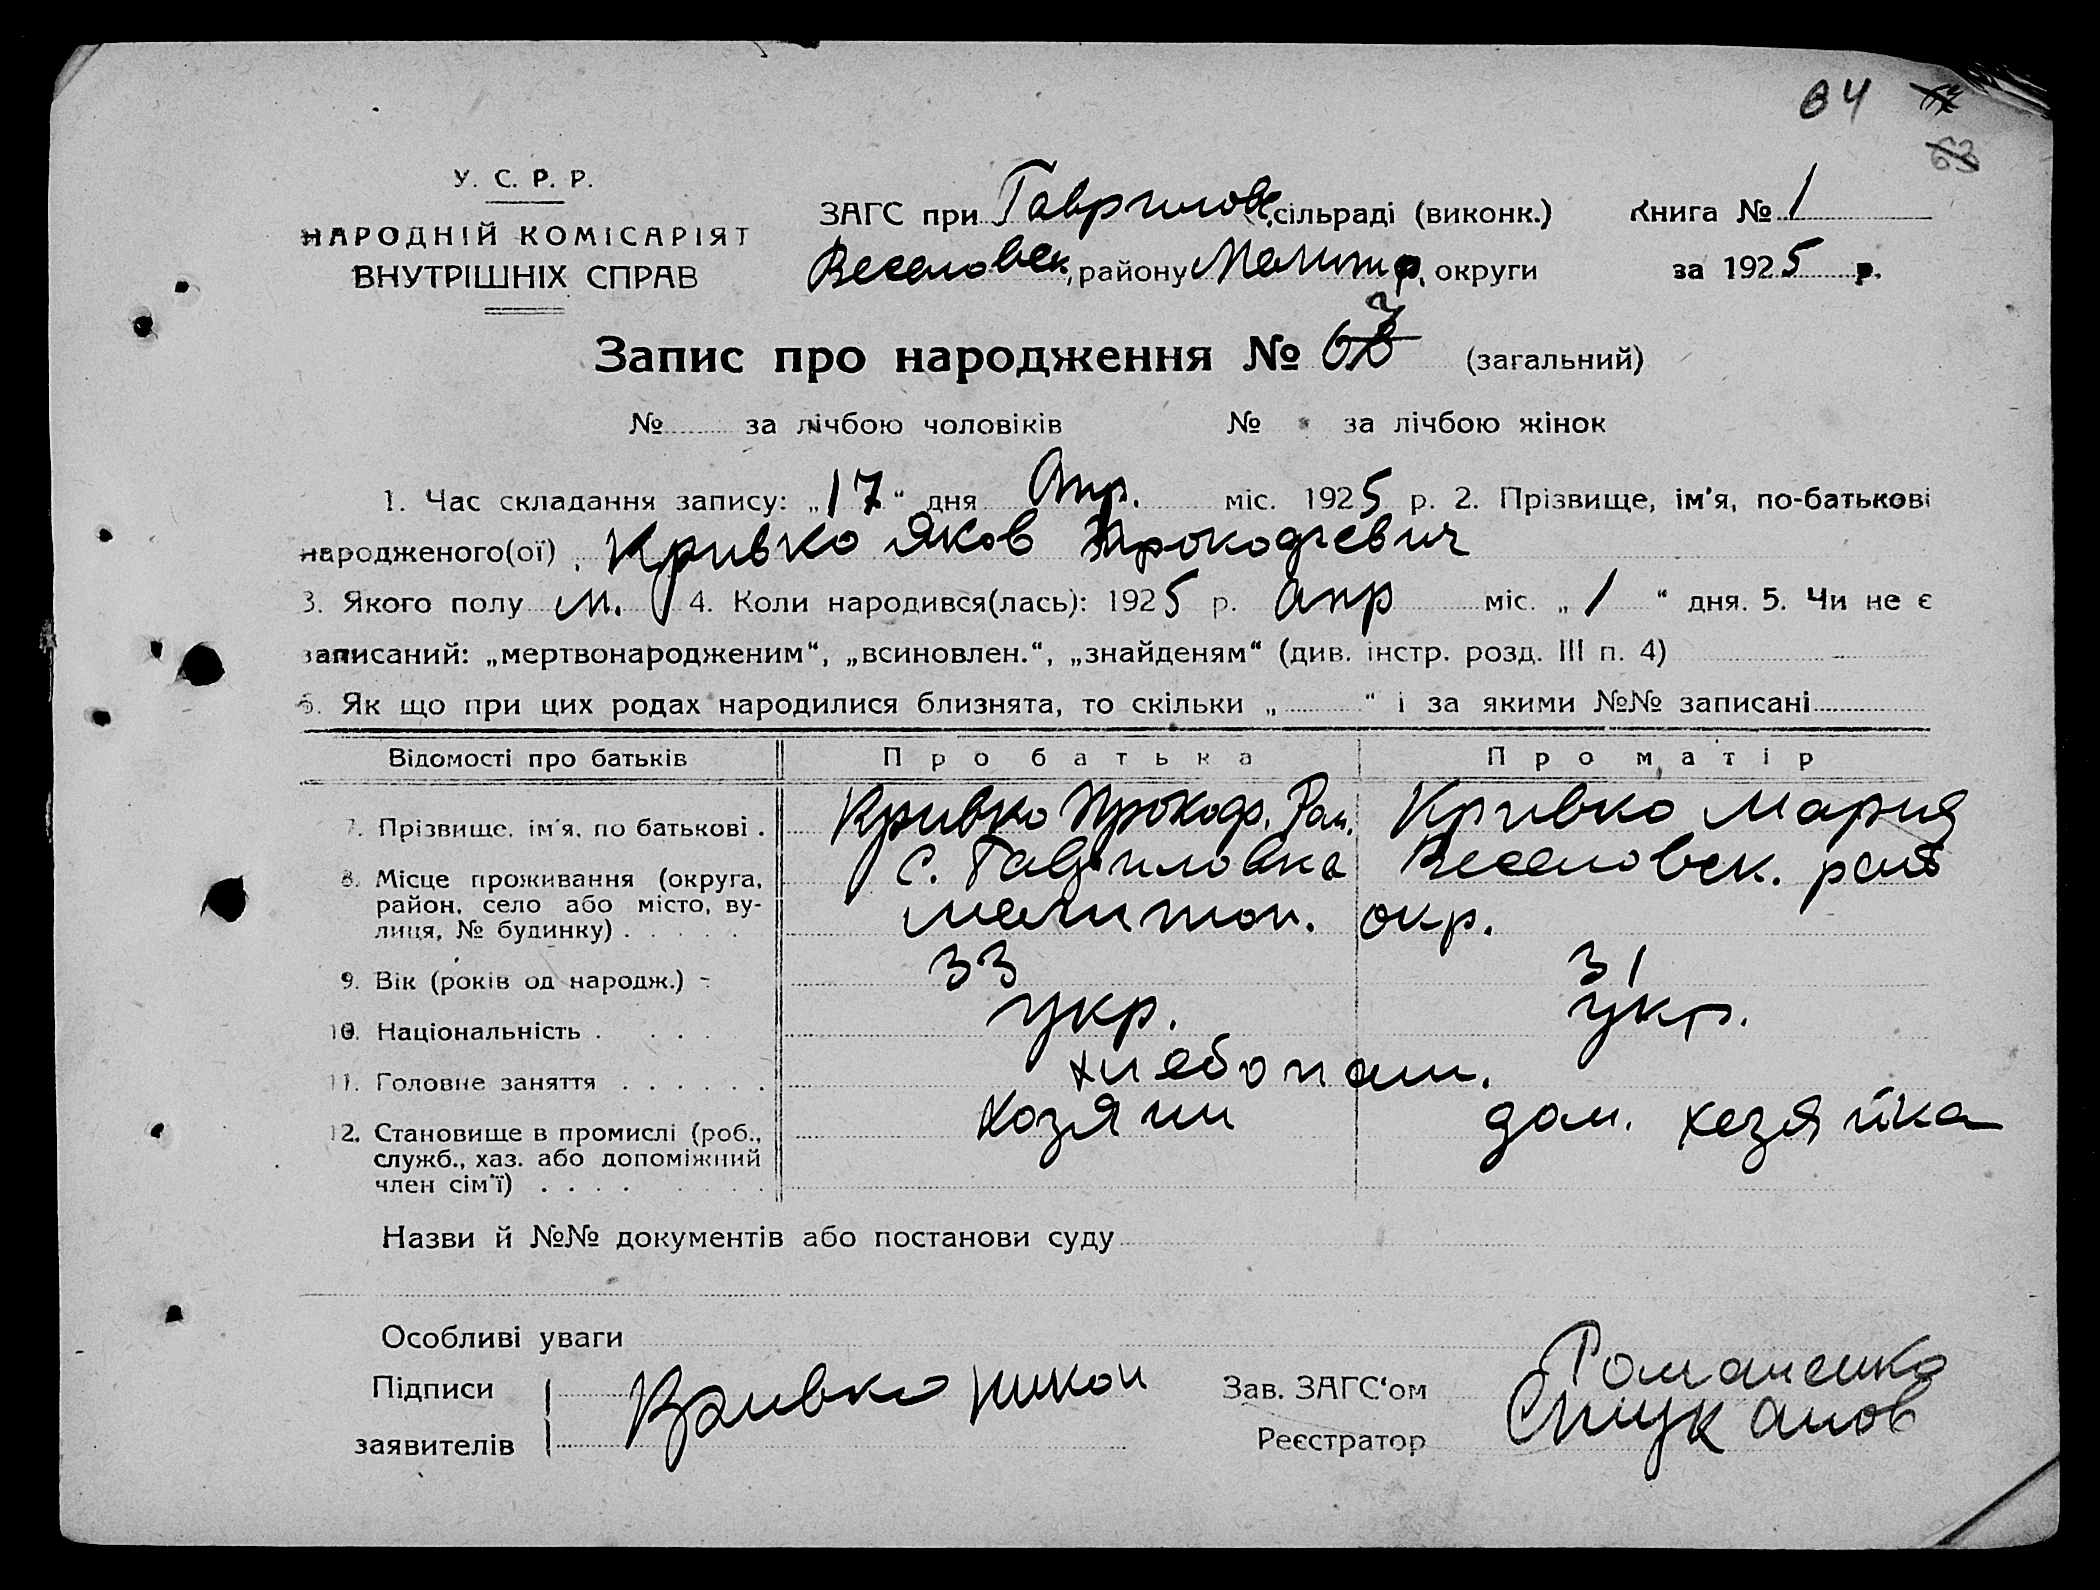 64
63
У. С. Р. Р.
НАРОДНІЙ КОМІСАРІЯТ
ВНУТРІШНІХ СПРАВ
ЗАГС при Гаврилов. сільраді (виконк.) Книга № 1
Веселовск, району Мелитоп. округи за 1925 р.
Запис про народження № 63 7 (загальний)
№ за лічбою чоловіків № за лічбою жінок
1. Час складання запису: „17“ дня Апр. міс. 1925 р. 2. Прізвище, ім'я, по-батькові
народженого(ої) Кривко Яков Прокофиевич
3. Якого полу м. 4. Коли народився(лась): 1925 р. апр міс. „1“ дня. 5. Чи не є
записаний: „мертвонародженим“, „всиновлен.“, „знайденям“ (див. інстр. розд. III п. 4)
6. Як що при цих родах народилися близнята, то скільки „ “ і за якими №№ записані
Відомості про батьків Про батька Про матір
7. Прізвище, ім'я, по батькові . Кривко Прокоф. Ром. Кривко Мария
8. Місце проживання (округа, с. Гавриловка Веселовск. рай
район, село або місто, ву- мелитоп. окр.
лиця, № будинку) . . . . .
9. Вік (років од народж.) - 33 31
10. Національність . . . . укр. укр.
11. Головне заняття . . . . . . хлебопаш.
12. Становище в промислі (роб., хозяин дом. хозяйка
служб., хаз. або допоміжний
член сім'ї) . . . .
Назви й №№ документів або постанови суду
Особливі уваги
Підписи Кривко Зав. ЗАГС'ом Романенко
заявителів Реєстратор Стуканов